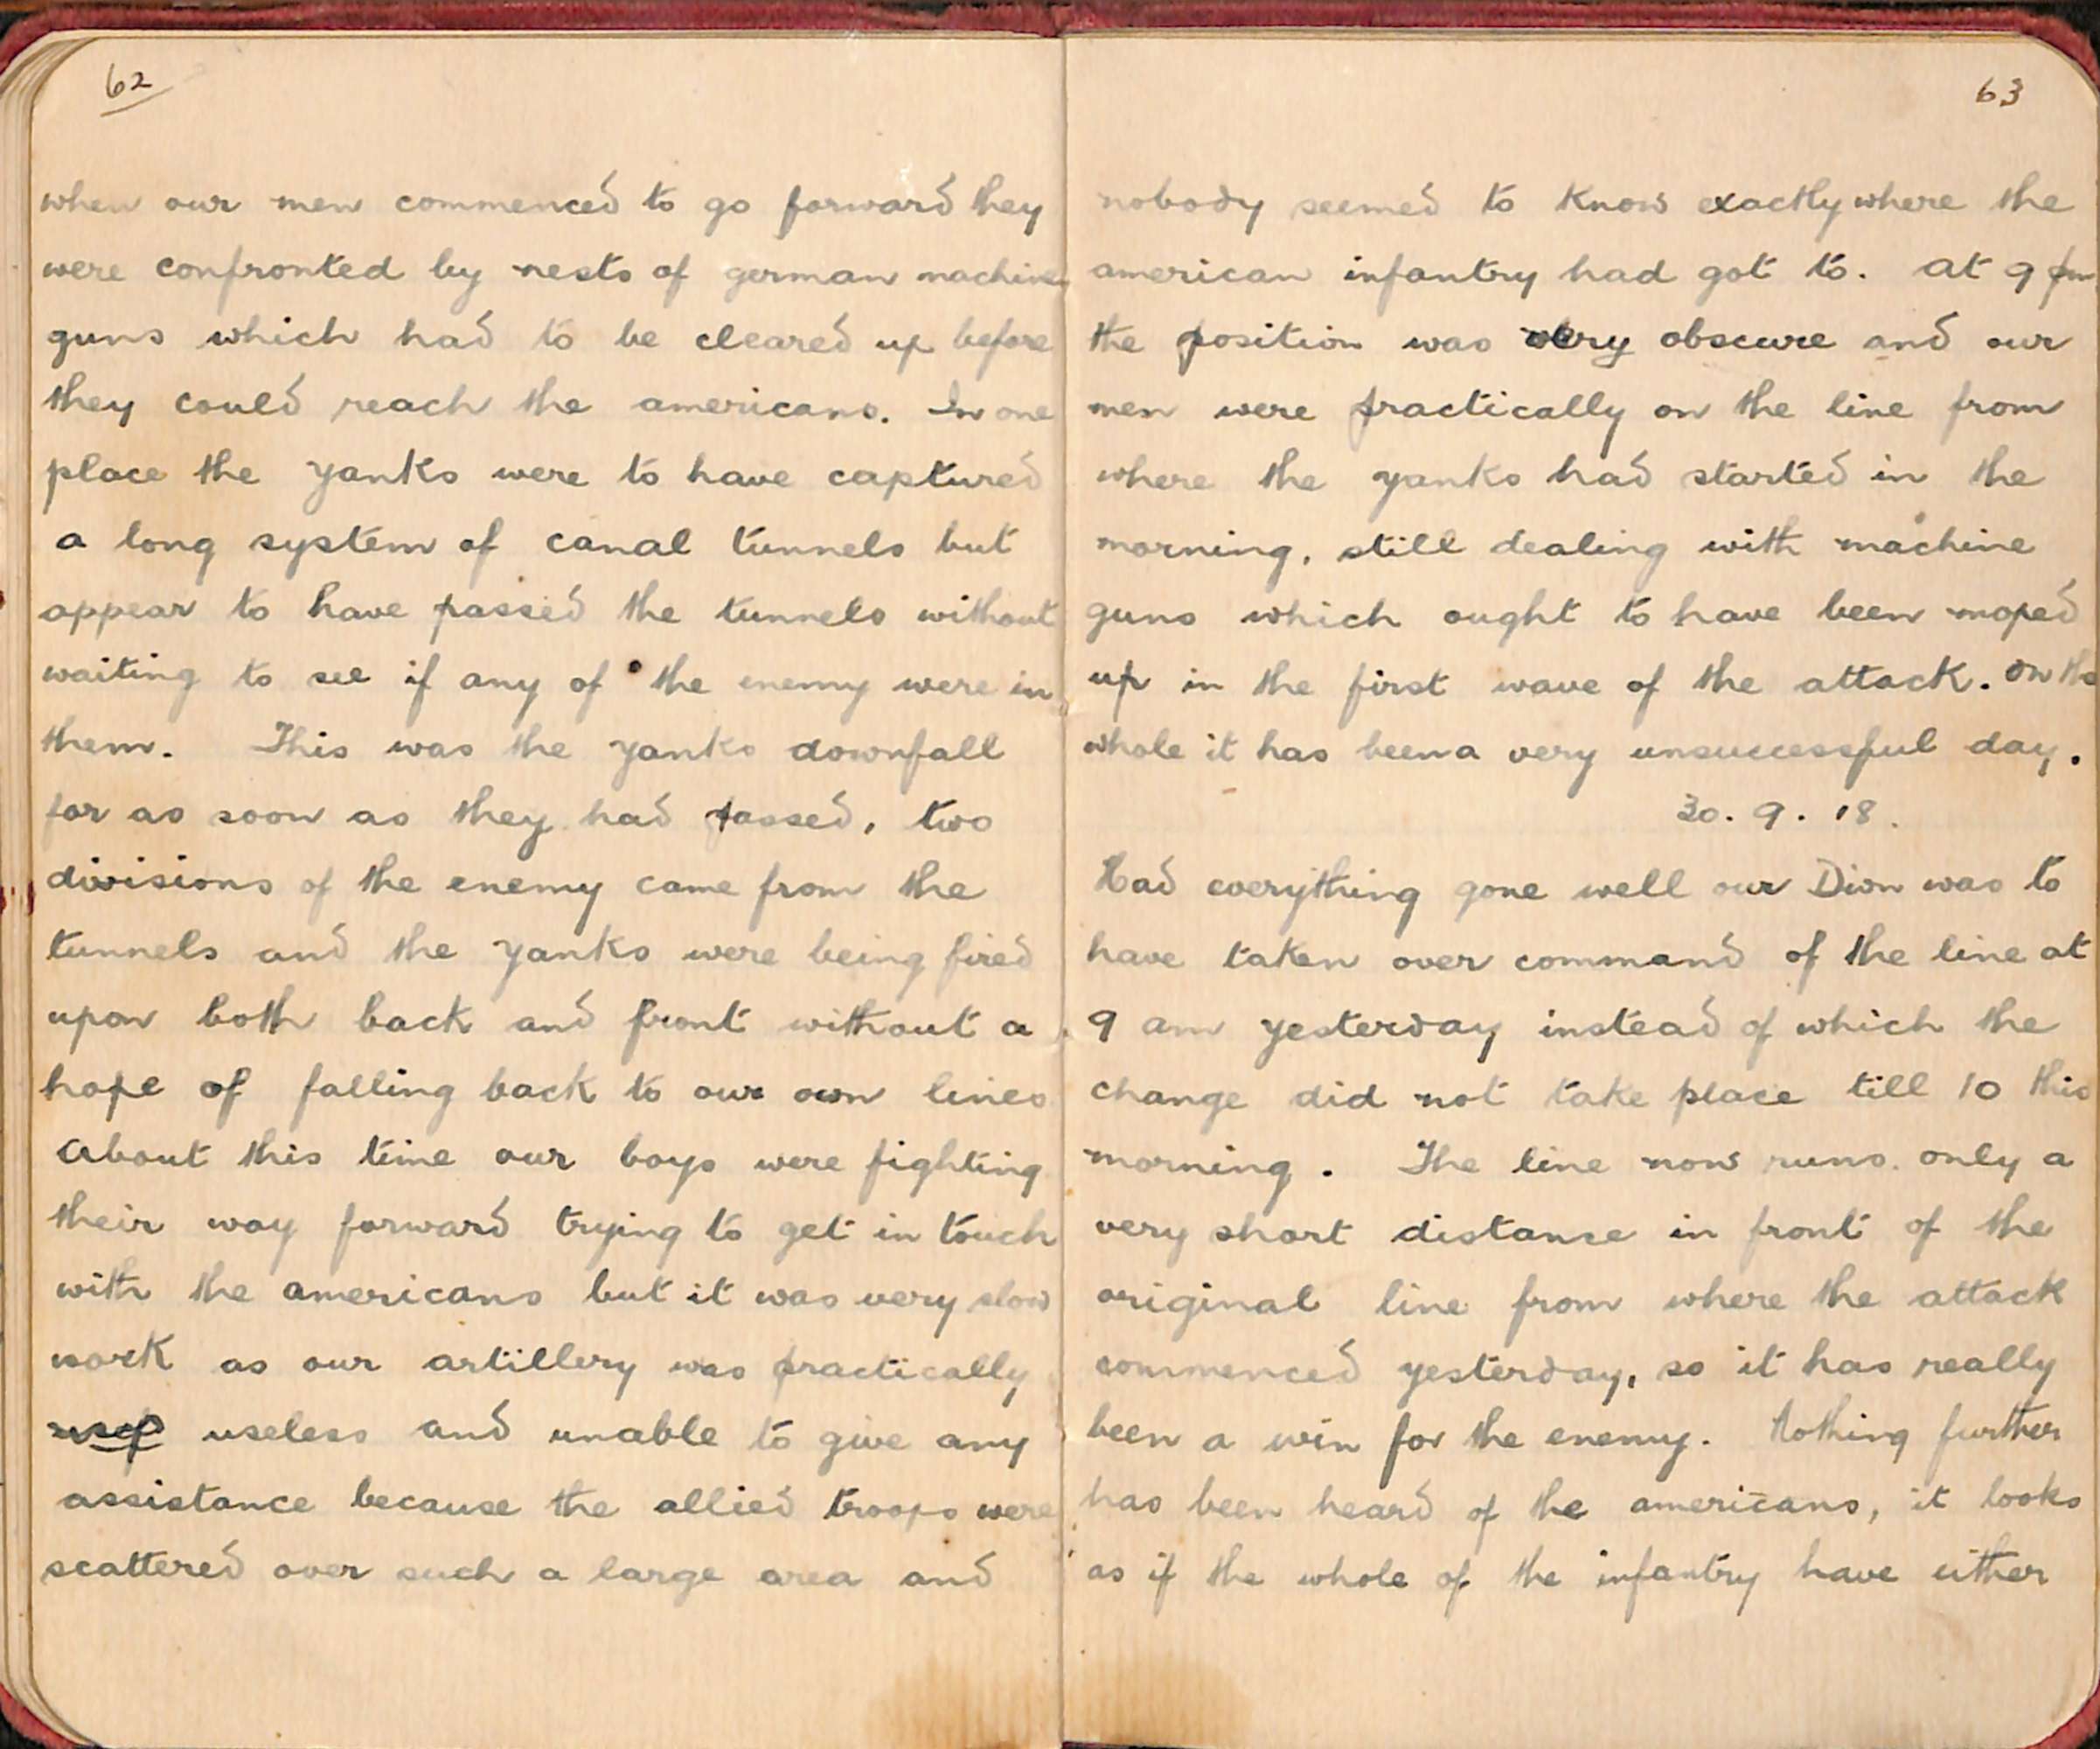 62
when our men commenced to go forward they
were confronted by nests of german machine
guns which had to be cleared up before
they could reach the americans. In one
place the yanks were to have captured
a long system of canal tunnels but
appear to have passed the tunnels without
waiting to see if any of the enemy were in
them. This was the yanks downfall
for as soon as they had passed, two
divisions of the enemy came from the
tunnels and the yanks were being fired
upon both back and front without a
hope of falling back to our own lines
About this time our boys were fighting
their way forward trying to get in touch
with the americans but it was very slow
work as our artillery was practically
useless and unable to give any
assistance because the allied troops were
scattered over such a large area and
63
nobody seemed to know exactly where the
american infantry had got to. at 9 pm
the position was very obscure and our
men were practically on the line from
where the yanks had started in the
morning, still dealing with machine
guns which ought to have been moped
up in the first wave of the attack. On the
whole it has been a very unsuccessful day.
30. 9. 18.
Had everything gone well our Divn was to
have taken over command of the line at
9 am yesterday instead of which the
change did not take place till 10 this
morning. The line now runs only a
very short distance in front of the
original line from where the attack
commenced yesterday, so it has really
been a win for the enemy. Nothing further
has been heard of the americans, it looks
as if the whole of the infantry have either